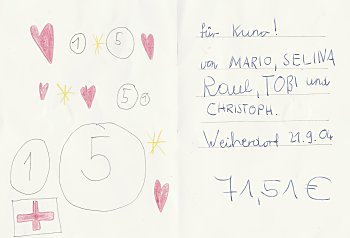 1 5
5 1
1 5
für Kuno!
von MARIO, SELINA
Raul, TOBI und
CHRISTOPH.
Weiherdorf 21.9.04
71,51 €